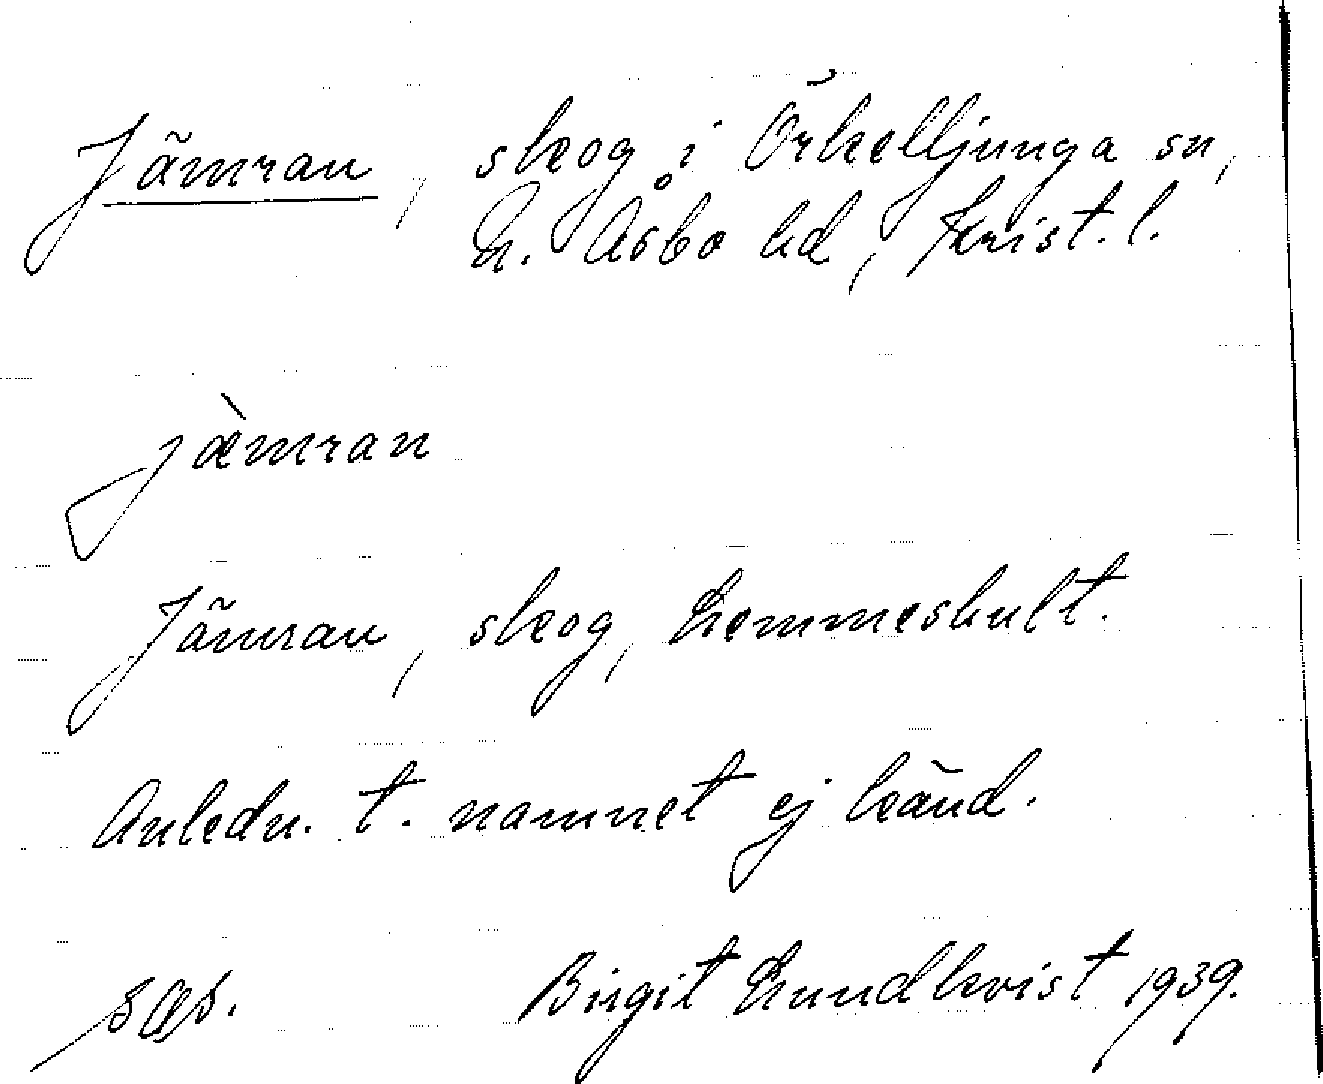 Jämran, skog i Örkelljunga sn,
N. Åsbo hd, Krist. l.
jàmran
Jämran, skog, Lemmeshult.
Anledn. t. namnet ej känd.
Birgit Lundkvist 1939.